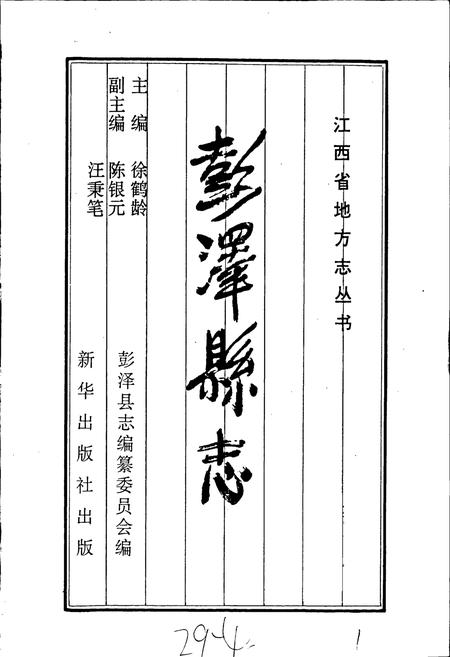 江西省地方志丛书
彭澤縣志
主编 徐鹤龄
副主编 陈银元
汪秉笔
彭泽县志编纂委员会编
新华出版社出版
29-4
1